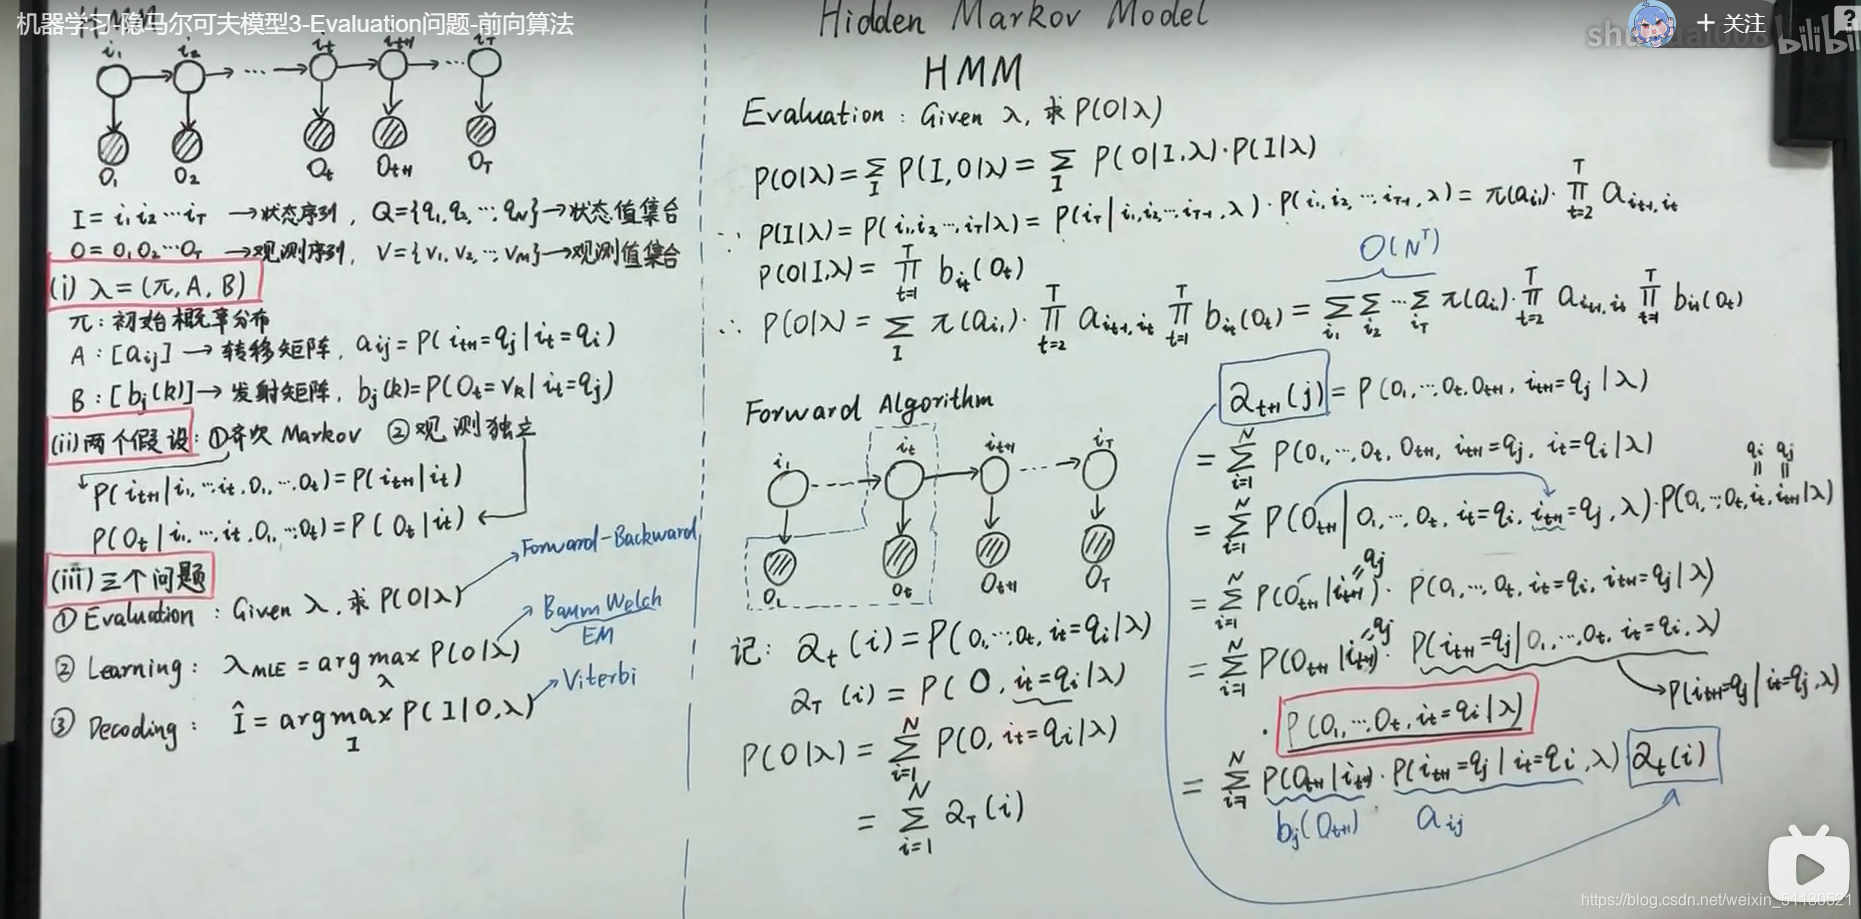 机器学习-隐马尔可夫模型3-Evaluation问题-前向算法
+ 关注
bilibili
HMM
i₁ i₂ iₜ iₜ₊₁ i_T
... ...
O₁ O₂ Oₜ Oₜ₊₁ O_T
I = i₁ i₂ ⋯ i_T → 状态序列, Q = {q₁, q₂, ⋯, q_N} → 状态值集合
O = O₁ O₂ ⋯ O_T → 观测序列, V = {v₁, v₂, ⋯, v_M} → 观测值集合
(i) λ = (π, A, B)
π: 初始概率分布
A: [aᵢⱼ] → 转移矩阵, aᵢⱼ = P(iₜ₊₁=qⱼ | iₜ=qᵢ)
B: [bⱼ(k)] → 发射矩阵, bⱼ(k) = P(Oₜ=v_k | iₜ=qⱼ)
(ii) 两个假设: ① 齐次 Markov ② 观测独立
P(iₜ₊₁ | i₁, ⋯, iₜ, O₁, ⋯, Oₜ) = P(iₜ₊₁ | iₜ)
P(Oₜ | i₁, ⋯, iₜ, O₁, ⋯, Oₜ) = P(Oₜ | iₜ)
(iii) 三个问题
Forward-Backward
① Evaluation: Given λ, 求 P(O|λ)
Baum Welch
EM
② Learning: λ_MLE = arg max_λ P(O|λ)
Viterbi
③ Decoding: Î = arg max_I P(I|O,λ)
Hidden Markov Model
HMM
Evaluation: Given λ, 求 P(O|λ)
P(O|λ) = Σ_I P(I,O|λ) = Σ_I P(O|I,λ)·P(I|λ)
∵ P(I|λ) = P(i₁, i₂, ⋯, i_T|λ) = P(i_T | i₁, i₂, ⋯, i_{T-1}, λ)·P(i₁, i₂, ⋯, i_{T-1}, λ) = π(a_{i₁})·∏_{t=2}^{T} a_{i_{t-1}, i_t}
P(O|I,λ) = ∏_{t=1}^{T} b_{i_t}(Oₜ)
O(N^T)
∴ P(O|λ) = Σ_I π(a_{i₁})·∏_{t=2}^{T} a_{i_{t-1}, i_t} ∏_{t=1}^{T} b_{i_t}(Oₜ) = Σ_{i₁} Σ_{i₂} ⋯ Σ_{i_T} π(a_{i₁})·∏_{t=2}^{T} a_{i_{t-1}, i_t} ∏_{t=1}^{T} b_{i_t}(Oₜ)
Forward Algorithm
i₁ iₜ iₜ₊₁ i_T
O₁ Oₜ Oₜ₊₁ O_T
记: αₜ(i) = P(O₁, ⋯, Oₜ, iₜ=qᵢ|λ)
α_T(i) = P(O, iₜ=qᵢ|λ)
P(O|λ) = Σ_{i=1}^{N} P(O, iₜ=qᵢ|λ)
= Σ_{i=1}^{N} α_T(i)
αₜ₊₁(j) = P(O₁, ⋯, Oₜ, Oₜ₊₁, iₜ₊₁=qⱼ | λ)
= Σ_{i=1}^{N} P(O₁, ⋯, Oₜ, Oₜ₊₁, iₜ₊₁=qⱼ, iₜ=qᵢ|λ)
qᵢ qⱼ
= Σ_{i=1}^{N} P(Oₜ₊₁ | O₁, ⋯, Oₜ, iₜ=qᵢ, iₜ₊₁=qⱼ, λ)·P(O₁, ⋯, Oₜ, iₜ, iₜ₊₁|λ)
qⱼ
= Σ_{i=1}^{N} P(Oₜ₊₁ | iₜ₊₁)·P(O₁, ⋯, Oₜ, iₜ=qᵢ, iₜ₊₁=qⱼ|λ)
qⱼ
= Σ_{i=1}^{N} P(Oₜ₊₁ | iₜ₊₁)·P(iₜ₊₁=qⱼ | O₁, ⋯, Oₜ, iₜ=qᵢ, λ)
→ P(iₜ₊₁=qⱼ | iₜ=qⱼ, λ)
· P(O₁, ⋯, Oₜ, iₜ=qᵢ|λ)
= Σ_{i=1}^{N} P(Oₜ₊₁ | iₜ₊₁)·P(iₜ₊₁=qⱼ | iₜ=qᵢ, λ) αₜ(i)
bⱼ(Oₜ₊₁) aᵢⱼ
https://blog.csdn.net/weixin_51130521